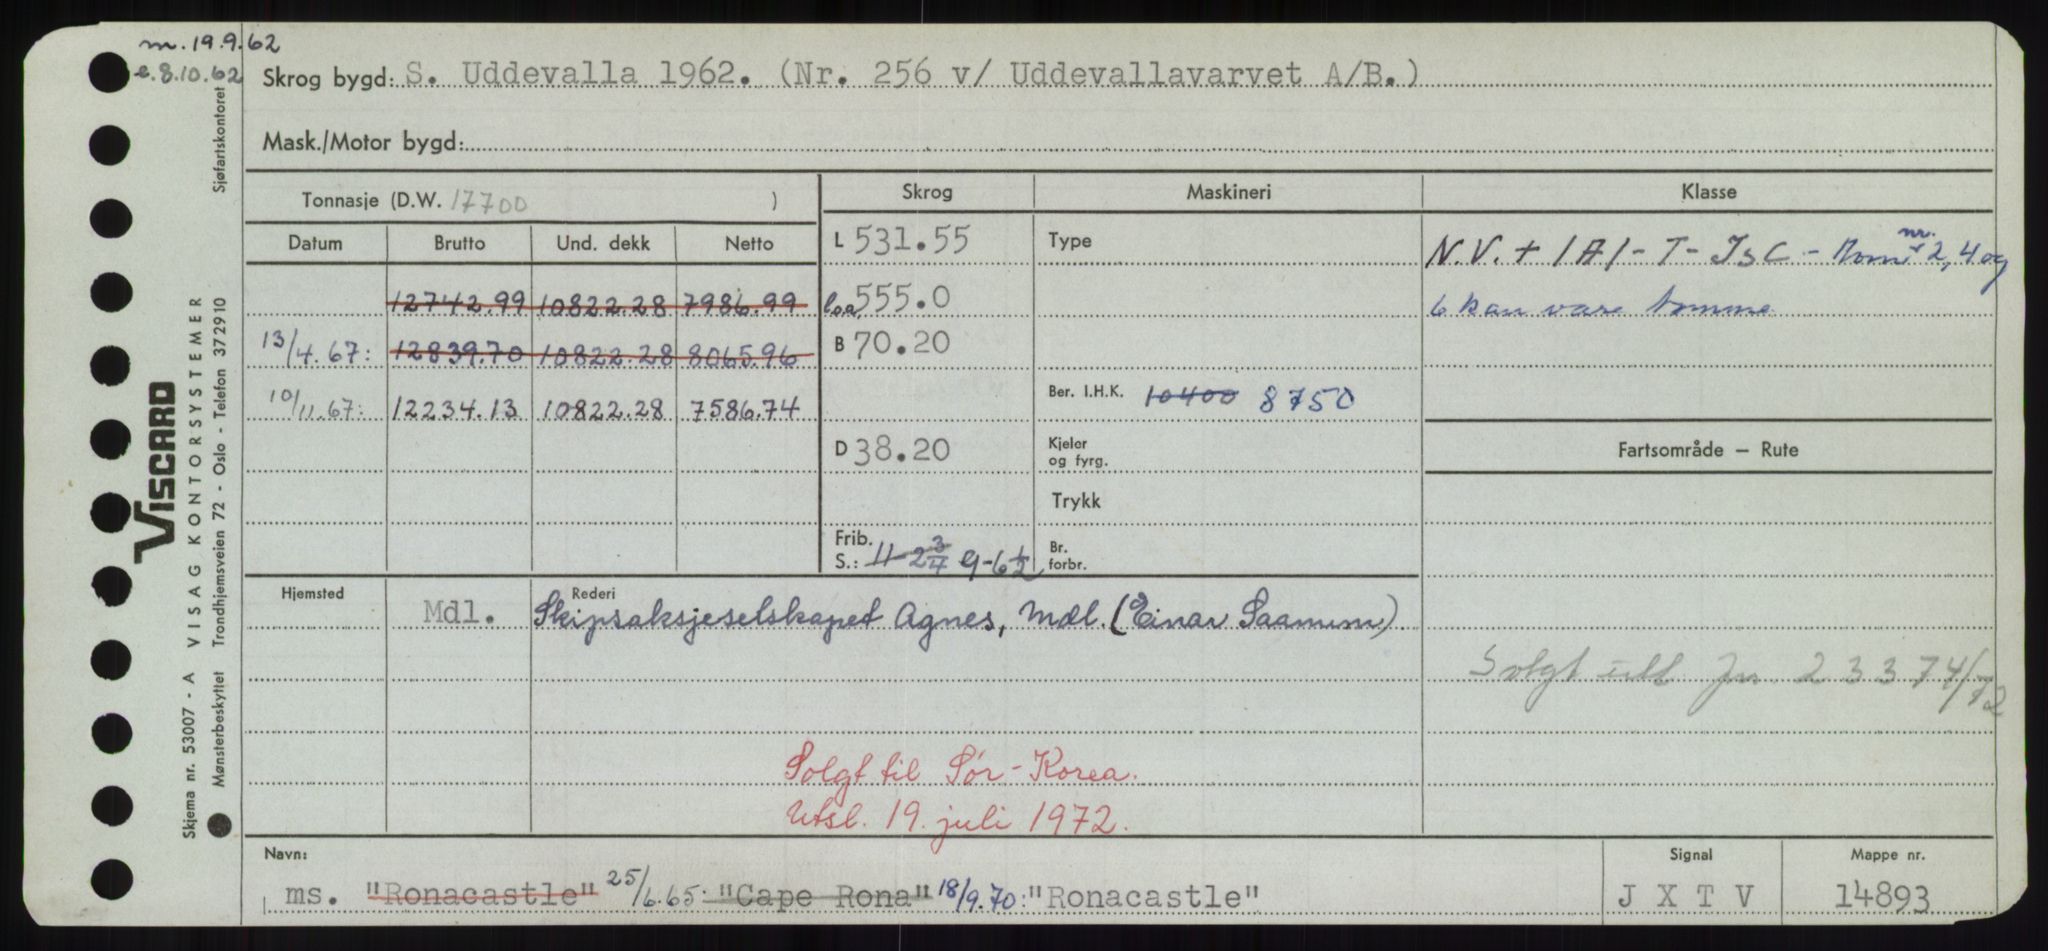 m. 19.9.62
e. 8.10.62
Skrog bygd: S. Uddevalla 1962. (Nr. 256 v/ Uddevallavarvet A/B.)
Mask./Motor bygd:
Tonnasje (D.W. 17700 )
Skrog
Maskineri
Klasse
Datum Brutto Und. dekk Netto
L 531.55
Type
N.V. + 1A1 - T - IsC - Rom nr. 2, 4 og
6 kan være tomme
12742.99 10822.28 7986.99
l.o.a. 555.0
13/4.67: 12839.70 10822.28 8065.96
B 70.20
10/11.67: 12234.13 10822.28 7586.74
Ber. I.H.K. 10400 8750
D 38.20
Kjeler
og fyrg.
Fartsområde – Rute
Trykk
Frib.
S.: 11-2 3/4 9-6 1/2
Br.
forbr.
Hjemsted
Rederi
Mdl. Skipsaksjeselskapet Agnes, Mdl. (Einar Saanum)
Solgt utl. Jnr. 23374/72
Solgt til Sør-Korea.
Utsl. 19. juli 1972.
Navn:
Signal
Mappe nr.
ms. "Ronacastle" 25/6.65: "Cape Rona" 18/9.70: "Ronacastle"
J X T V
14893
Skjema nr. 53007 - A VISAG KONTORSYSTEMER
VISCARD
Mønsterbeskyttet Trondhjemsveien 72 - Oslo - Telefon 372910 Sjøfartskontoret